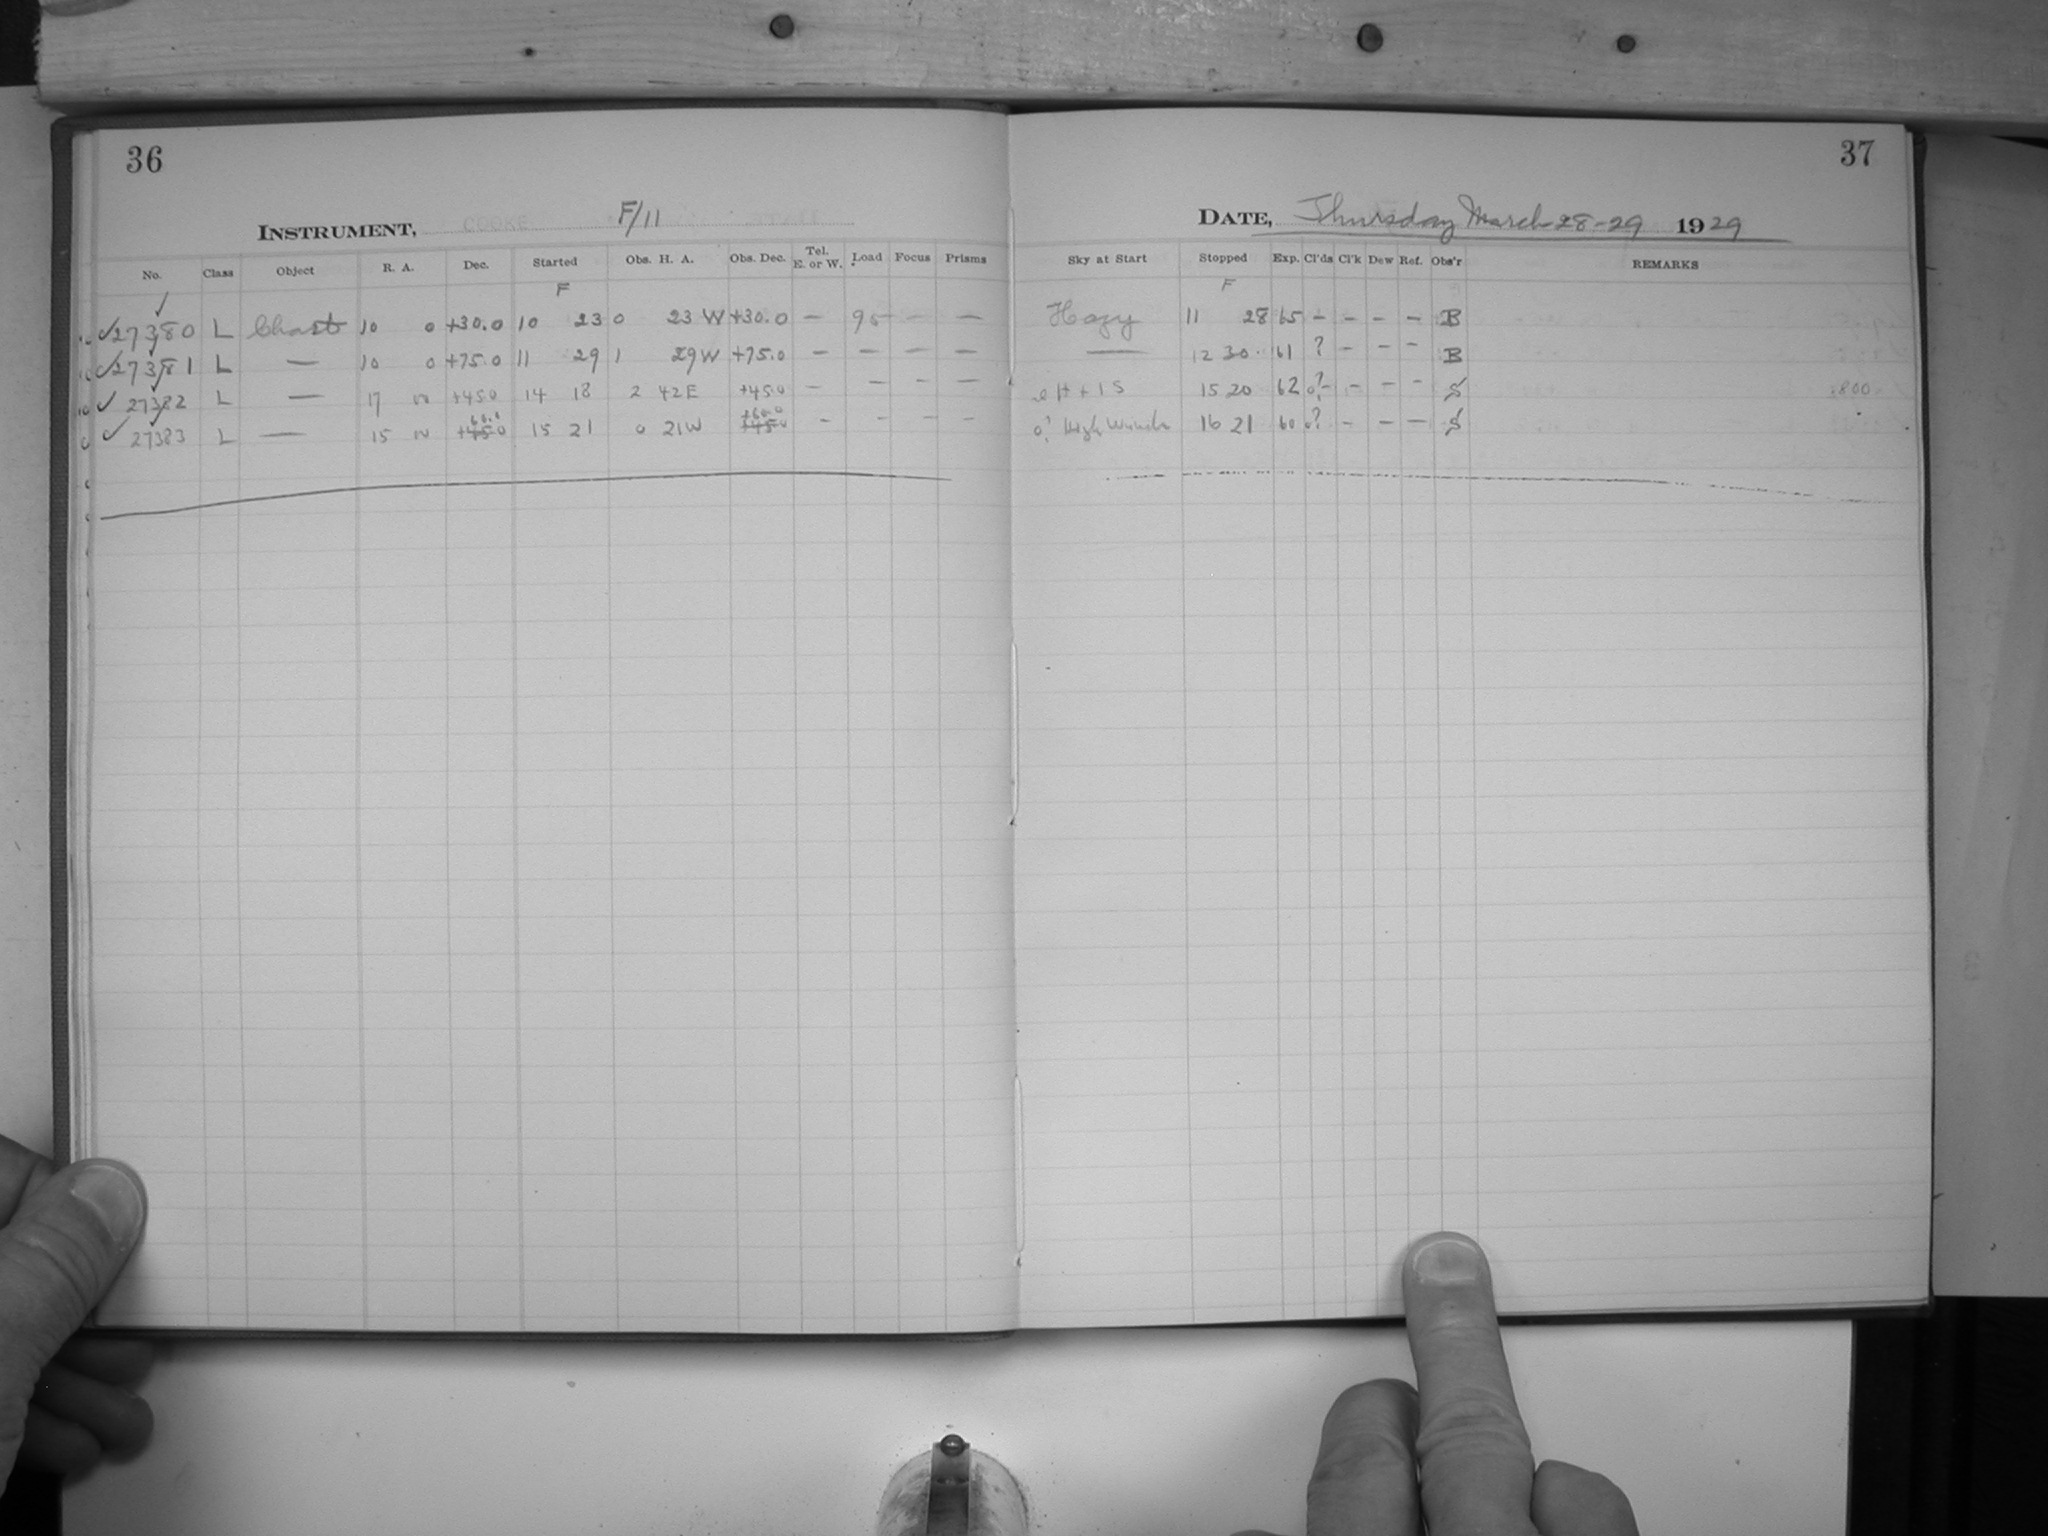 36
37
INSTRUMENT, F/11
DATE, Thursday March 28-29 1929
No. Class Object R. A. Dec. Started Obs. H. A. Obs. Dec. Tel. E. or W. Load Focus Prisms Sky at Start Stopped Exp. Cl'ds Cl'k Dew Ref. Obs'r REMARKS
F F
✓27380 L Chart 10 0 +30.0 10 23 0 23 W +30.0 — 95 — — Hazy 11 28 65 — — — — B
✓27381 L — 10 0 +75.0 11 29 1 29W +75.0 — — — — — 12 30 61 ? — — — B
✓ 27382 L — 17 +45.0 14 18 2 42E +45.0 — — — — 15 20 62 ? — — — S
✓ 27383 L — 15 +45.0 60.0 15 21 0 21W +45.0 +60.0 — — — — High Winds 16 21 60 ? — — — S